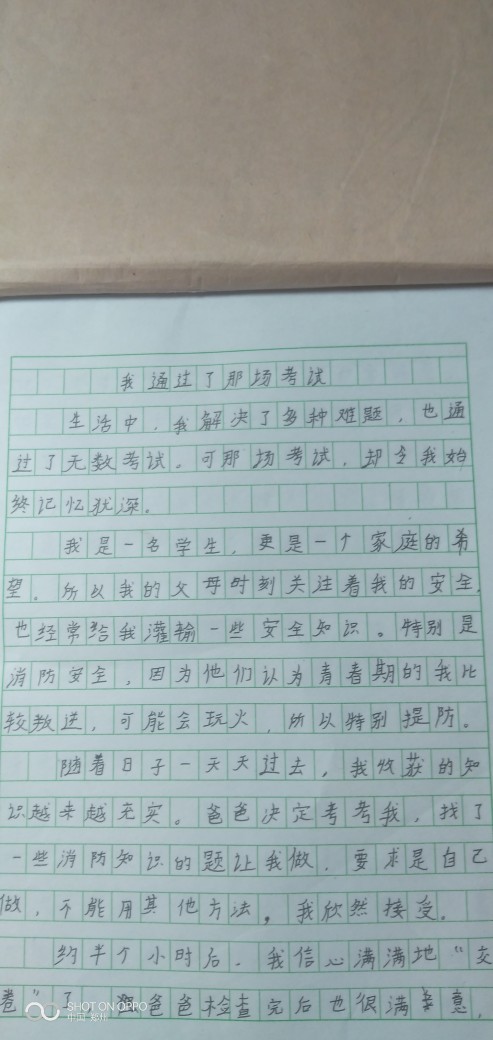 我通过了那场考试
生活中，我解决了多种难题，也通
过了无数考试。可那场考试，却令我始
终记忆犹深。
我是一名学生，更是一个家庭的希
望。所以我的父母时刻关注着我的安全，
也经常给我灌输一些安全知识。特别是
消防安全，因为他们认为青春期的我比
较叛逆，可能会玩火，所以特别提防。
随着日子一天天过去，我收获的知
识越来越充实。爸爸决定考考我，找了
一些消防知识的题让我做，要求是自己
做，不能用其他方法。我欣然接受。
约半个小时后，我信心满满地“交
卷”了，爸爸检查完后也很满意，
SHOT ON OPPO
中国·郑州